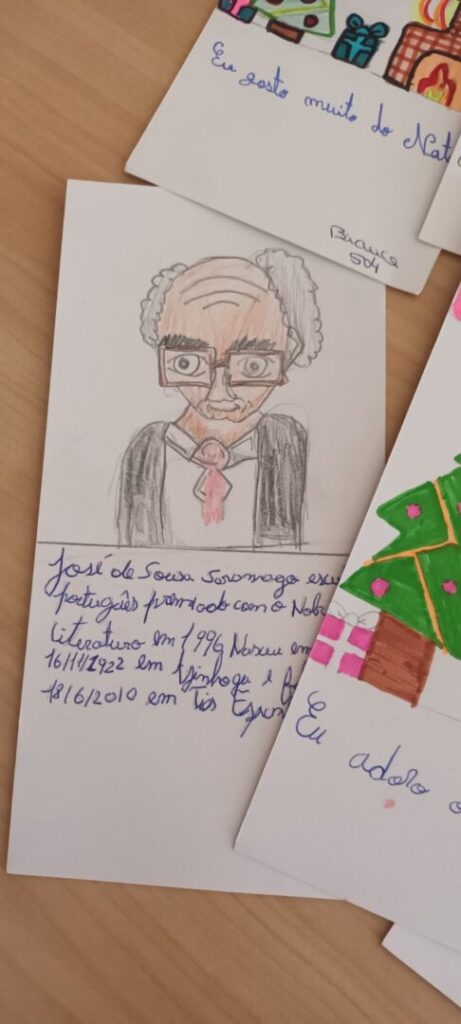 Eu gosto muito do Nat
Bianca
504
José de Sousa Saramago esc
português premiado com o Nob
Literatura em 1996 Nasceu em
16/11/1922 em Azinhaga e f
18/6/2010 em
Eu adoro o